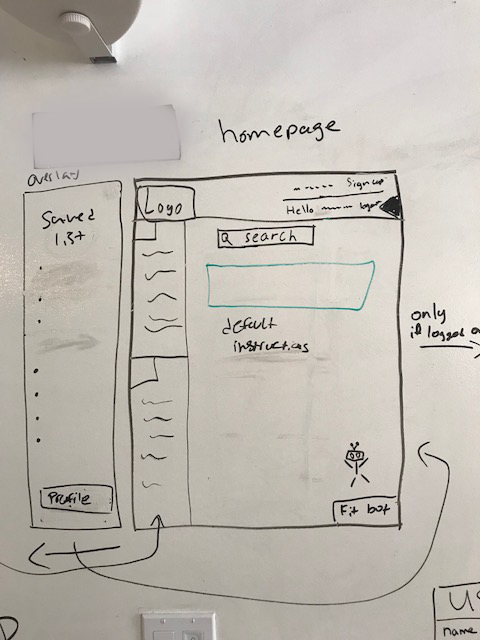 homepage
overlay
Saved
List
Profile
Logo
Sign up
Hello
search
default
instructions
Fit bot
only
if logged
US
name
D